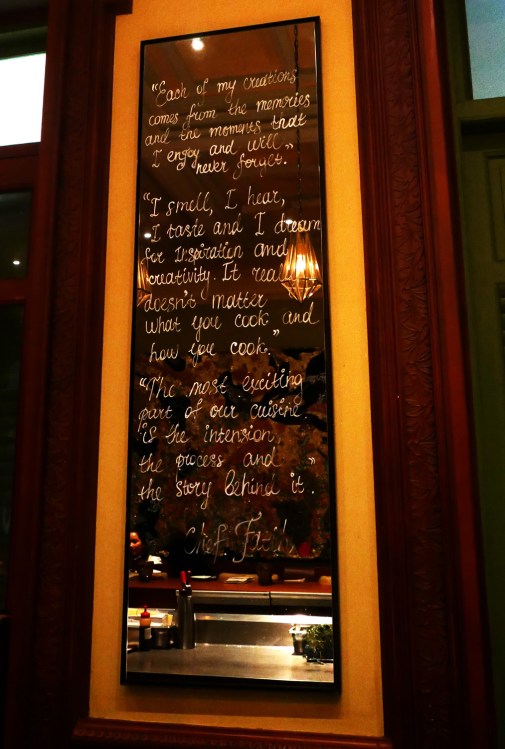 "Each of my creations
comes from the memories
and the moments that
I engoy and will
never forget."
"I smell, I hear,
I taste and I dream
for Inspiration and
creativity. It really
doesn't matter
what you cook and
how you cook."
"The most exciting
part of our cuisine
is the intension
the process and
the story behind it."
Chef Fatih